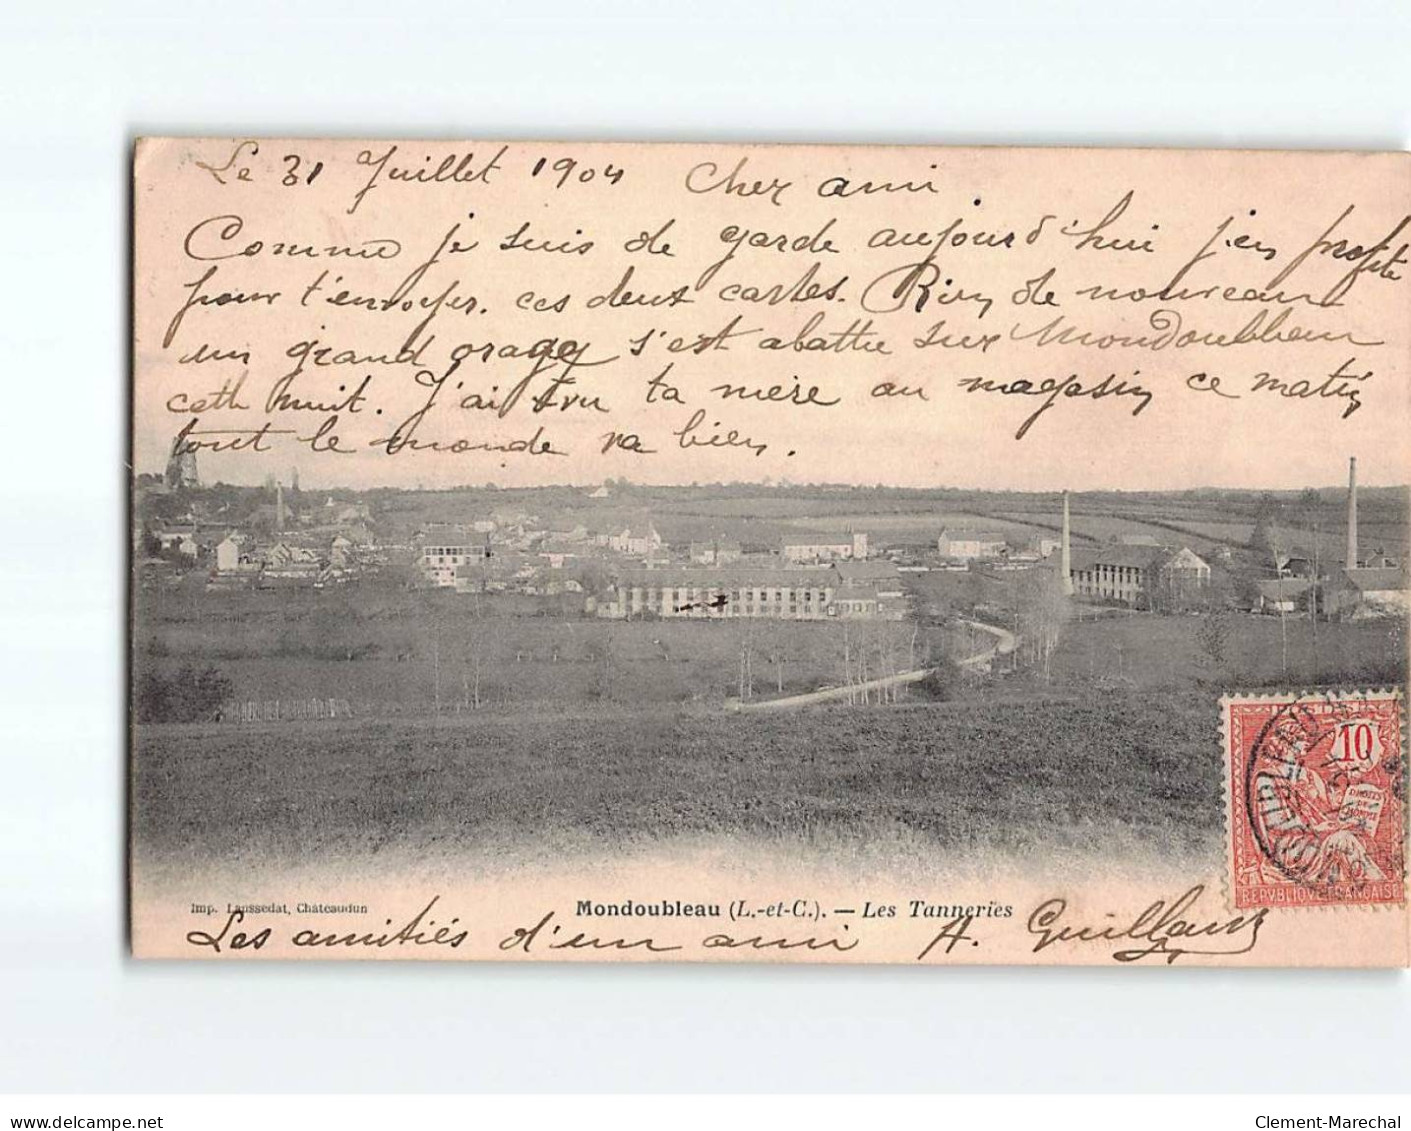 Le 31 Juillet 1904 Cher ami
Comme je suis de garde aujourd'hui j'en profite
pour t'envoyer. ces deux cartes. Rien de nouveau
un grand orage s'est abattu sur Mondoubleau
cette nuit. J'ai vu ta mère au magasin ce matin
tout le monde va bien.
10
DROITS
DE
L'HOMME
REPUBLIQUE FRANÇAISE
Imp. Laussedat, Châteaudun
Mondoubleau (L.-et-C.). — Les Tanneries
Les amitiés d'un ami A.
www.delcampe.net
Clement-Marechal